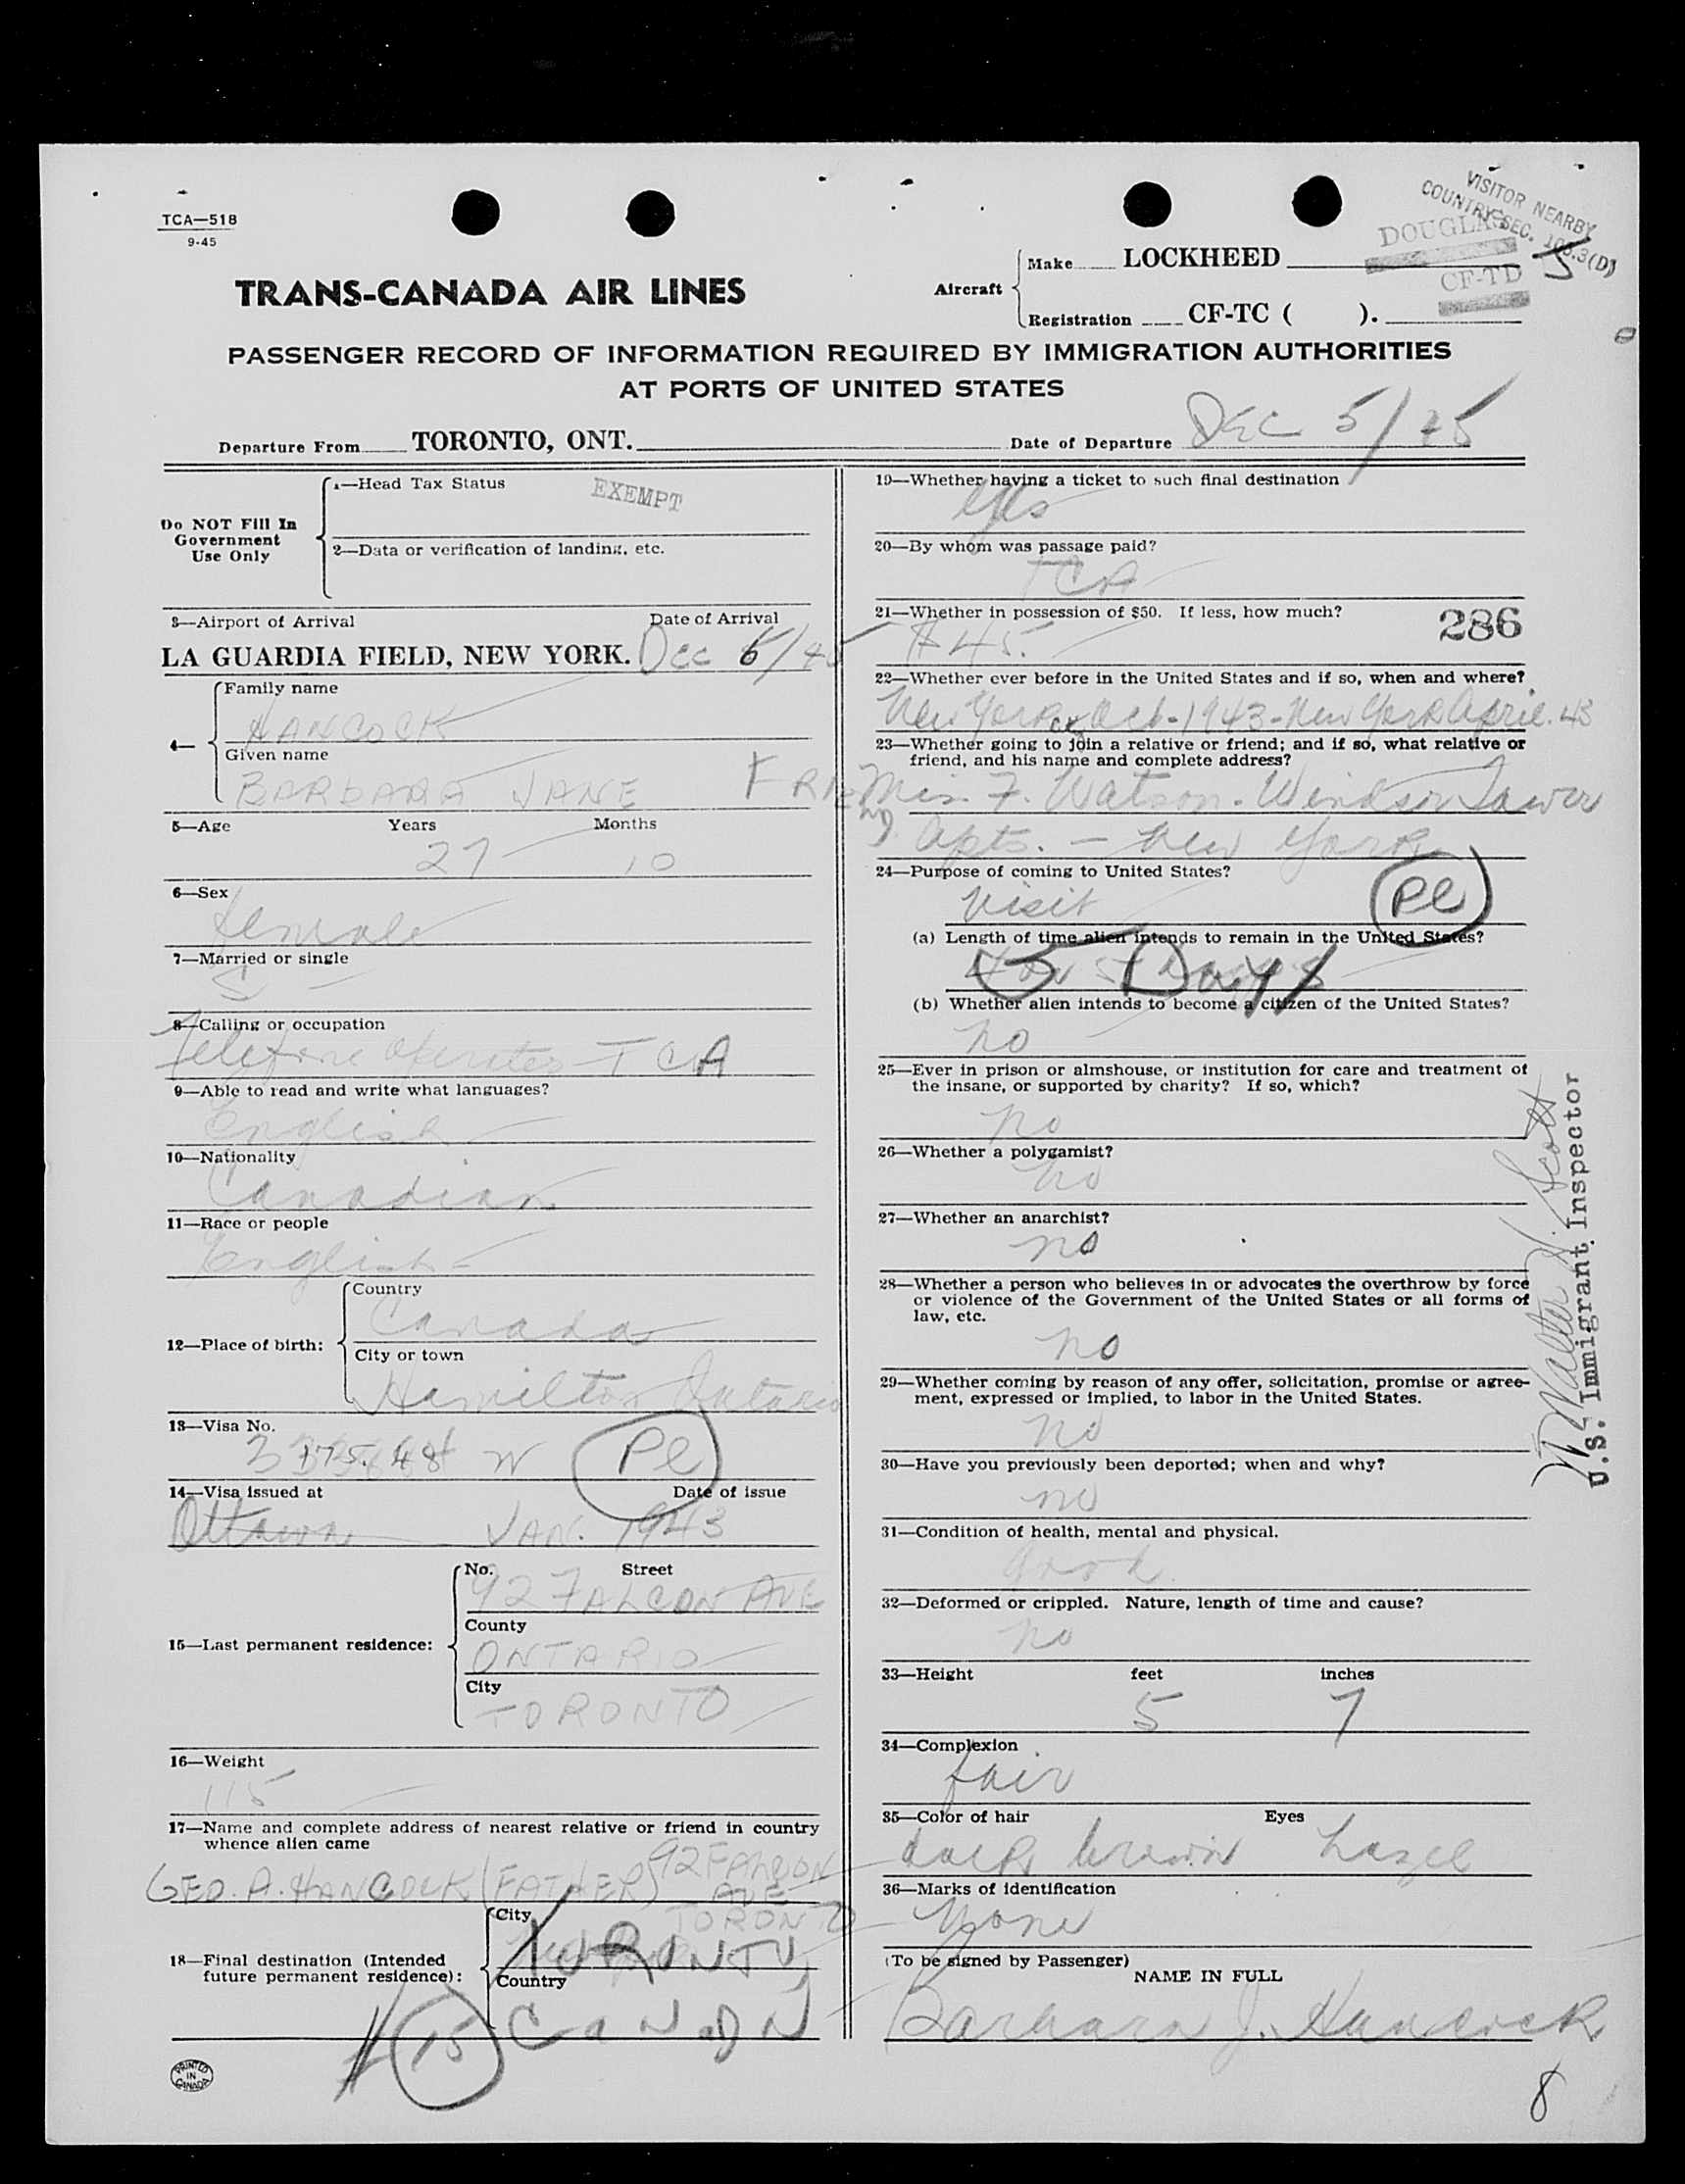 TCA—518
9-45
VISITOR NEARBY
COUNTRY SEC. 103.3(D)
DOUGLAS
CF-TD
5
TRANS-CANADA AIR LINES
Aircraft
Make LOCKHEED
Registration CF-TC ( ).
PASSENGER RECORD OF INFORMATION REQUIRED BY IMMIGRATION AUTHORITIES
AT PORTS OF UNITED STATES
Departure From TORONTO, ONT. Date of Departure DEC 5/45
Do NOT Fill In
Government
Use Only
1—Head Tax Status EXEMPT
2—Data or verification of landing, etc.
3—Airport of Arrival Date of Arrival
LA GUARDIA FIELD, NEW YORK. Dec 5/45
4—
Family name
HANCOCK
Given name
BARBARA JANE
5—Age Years Months
27 10
6—Sex
female
7—Married or single
S
8—Calling or occupation
Telefone operator TCA
9—Able to read and write what languages?
English
10—Nationality
Canadian
11—Race or people
English
12—Place of birth:
Country
Canada
City or town
Hamilton Ontario
13—Visa No.
W Pl
14—Visa issued at Date of issue
Ottawa JAN. 1943
15—Last permanent residence:
No. Street
92 FALCON AVE
County
ONTARIO
City
TORONTO
16—Weight
115
17—Name and complete address of nearest relative or friend in country
whence alien came
GEO. A. HANCOCK (FATHER) 92 FALCON
AVE
TORONTO
18—Final destination (Intended
future permanent residence):
City
TORONTO
Country
CANADA
15
PRINTED
IN
CANADA
19—Whether having a ticket to such final destination
Yes
20—By whom was passage paid?
TCA
21—Whether in possession of $50. If less, how much?
$45. 286
22—Whether ever before in the United States and if so, when and where?
New York Oct-1943-New York April. 43
23—Whether going to join a relative or friend; and if so, what relative or
friend, and his name and complete address?
FRIEND Miss F. Watson. Windsor Tower
Apts. — New York
24—Purpose of coming to United States?
visit Pl
(a) Length of time alien intends to remain in the United States?
5 Days
(b) Whether alien intends to become a citizen of the United States?
no
25—Ever in prison or almshouse, or institution for care and treatment of
the insane, or supported by charity? If so, which?
no
26—Whether a polygamist?
no
27—Whether an anarchist?
no
28—Whether a person who believes in or advocates the overthrow by force
or violence of the Government of the United States or all forms of
law, etc.
no
29—Whether coming by reason of any offer, solicitation, promise or agree-
ment, expressed or implied, to labor in the United States.
no
30—Have you previously been deported; when and why?
no
31—Condition of health, mental and physical.
Good
32—Deformed or crippled. Nature, length of time and cause?
no
33—Height feet inches
5 7
34—Complexion
fair
35—Color of hair Eyes
dark brown hazel
36—Marks of identification
None
(To be signed by Passenger)
NAME IN FULL
Barbara J. Hancock
8
Walter Scott
U.S. Immigrant Inspector